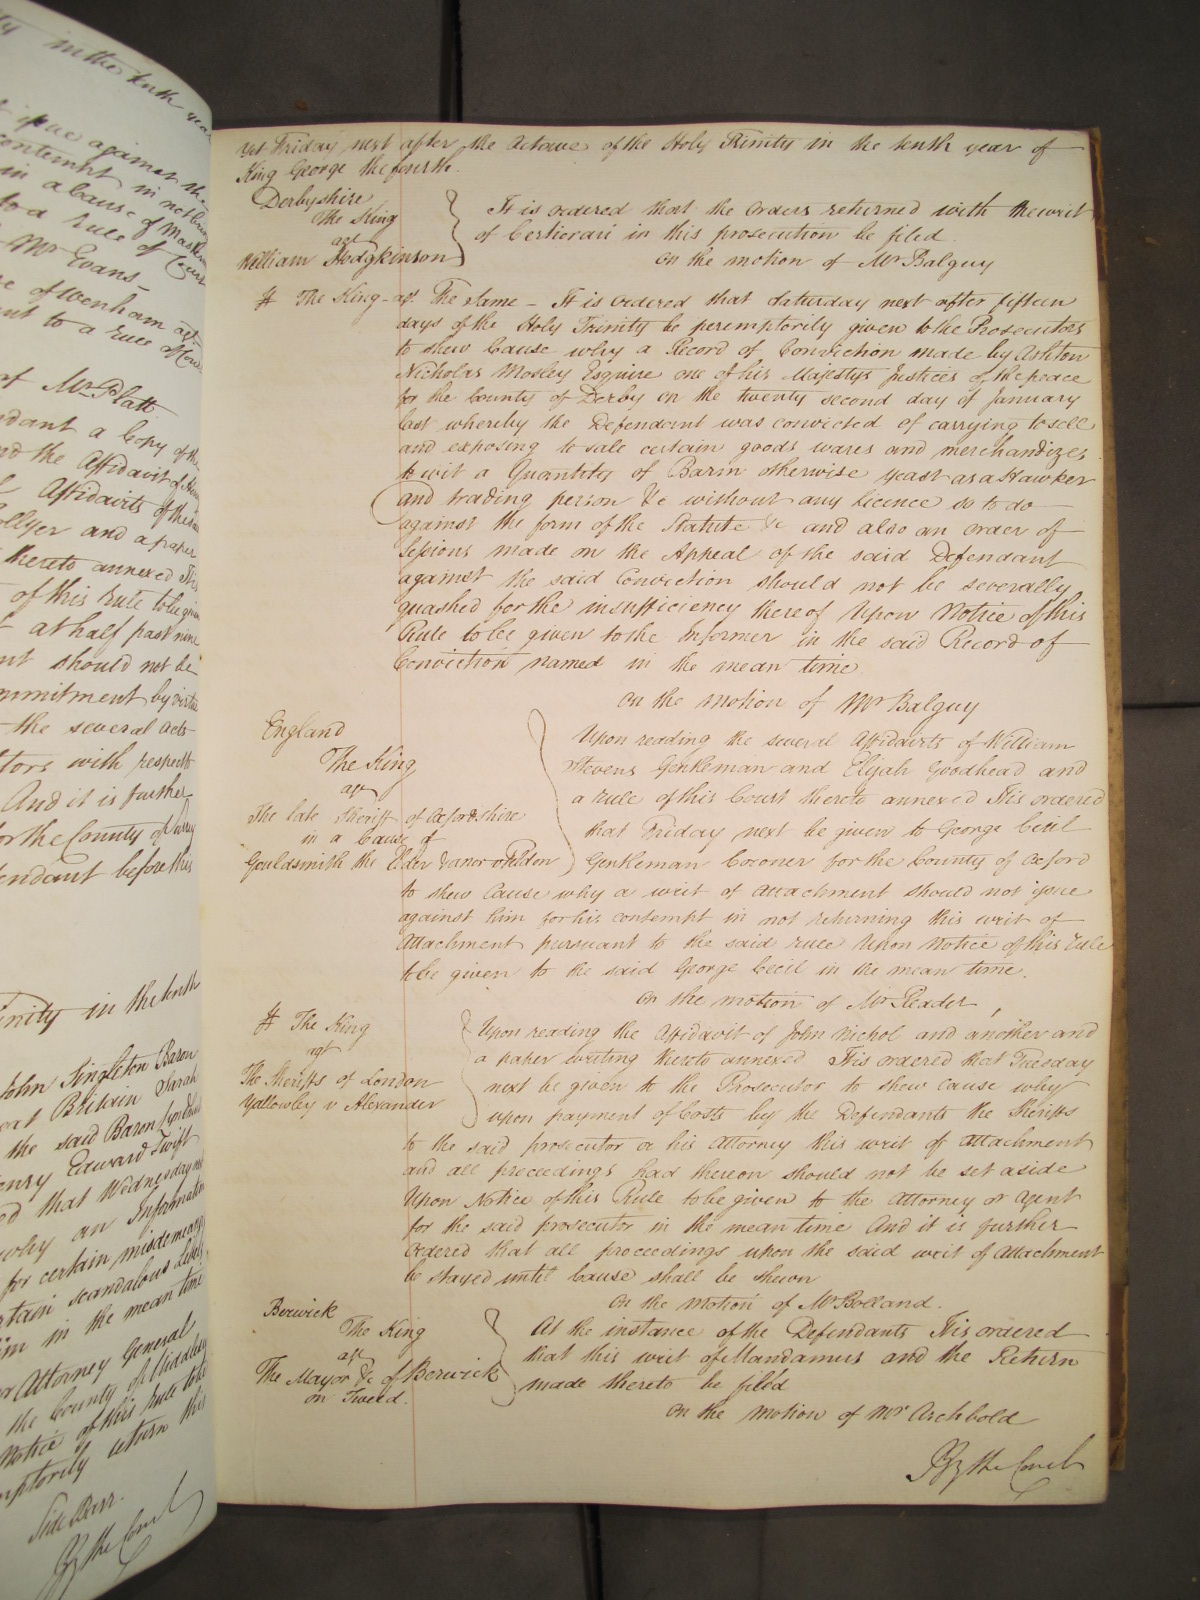 in the tenth year
issue against the
contempt in not
in a Cause of
Rule of Court
Mr Evans
of Wenham agt
to a rule of
of Mr Platt
dant a Copy of the
the Affidavit of
Affidavits of the
ollyer and a paper
thereto annexed It is
of this Rule to be given
at half past nine
should not be
mmitment by virtue
the several acts
tors with respect
And it is further
or the County of Surry
endant before this
inity in the tenth
John Singleton Baron
eat Britain Sarah
the said Baron Lyndhurst
enry Edward Swift
ed that Wednesday next
why an Information
for certain misdemeanors
rtain scandalous Libels
him in the mean time
Attorney General
the County of Middlesex
Notice of this Rule to be
mptorily return this
Side Barr.
By the Court
Yet Friday next after the Octave of the Holy Trinity in the tenth year of
King George the fourth.
Derbyshire
The King
agt
William Hodgkinson
It is ordered that the orders returned with the writ
of Certiorari in this prosecution be filed.
On the motion of Mr Balguy
# The King agt The same - It is ordered that Saturday next after fifteen
days of the Holy Trinity be peremptorily given to the Prosecutors
to shew Cause why a Record of Conviction made by Ashton
Nicholas Mosley Esquire one of his Majestys Justices of the peace
for the County of Derby on the twenty second day of January
last whereby the Defendant was convicted of carrying to sell
and exposing to sale certain goods wares and merchandizes
to wit a Quantity of Barm otherwise yeast as a Hawker
and trading person &c without any Licence so to do
against the form of the Statute &c and also an order of
Sessions made on the Appeal of the said Defendant
against the said Conviction should not be severally
quashed for the insufficiency thereof Upon Notice of this
Rule to be given to the Informer in the said Record of
Conviction named in the mean time
On the motion of Mr Balguy
England
The King
agt
The late Sheriff of Oxfordshire
in a Cause of
Gouldsmith the Elder & anor v Fildon
Upon reading the several Affidavits of William
Stevens Gentleman and Elijah Goodhead and
a rule of this Court thereto annexed It is ordered
that Friday next be given to George Cecil
Gentleman Coroner for the County of Oxford
to shew Cause why a writ of attachment should not issue
against him for his contempt in not returning this writ of
Attachment pursuant to the said rule Upon Notice of this Rule
to be given to the said George Cecil in the mean time.
On the motion of Mr Reader
# The King
agt
The Sheriffs of London
Yallowley v Alexander
Upon reading the Affidavit of John Nichol and another and
a paper writing thereto annexed It is ordered that Tuesday
next be given to the Prosecutor to shew cause why
upon payment of Costs by the Defendants the Sheriffs
to the said prosecutor or his Attorney this writ of attachment
and all proceedings had thereon should not be set aside
Upon Notice of this Rule to be given to the Attorney or Agent
for the said prosecutor in the mean time And it is further
ordered that all proceedings upon the said writ of Attachment
be stayed until Cause shall be shewn
On the motion of Mr Bolland.
Berwick
The King
agt
The Mayor &c of Berwick
on Tweed.
At the instance of the Defendants It is ordered
that this writ of Mandamus and the Return
made thereto be filed
On the Motion of Mr Archbold
By the Court